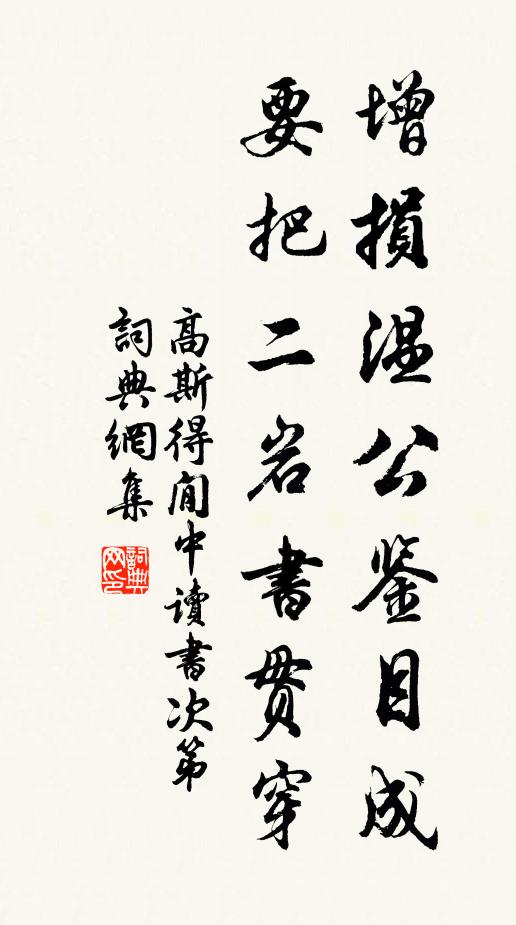 增損溫公鑒目成
要把二岩書貫穿
高斯得閒中讀書次第
詞典網集
詞典网印